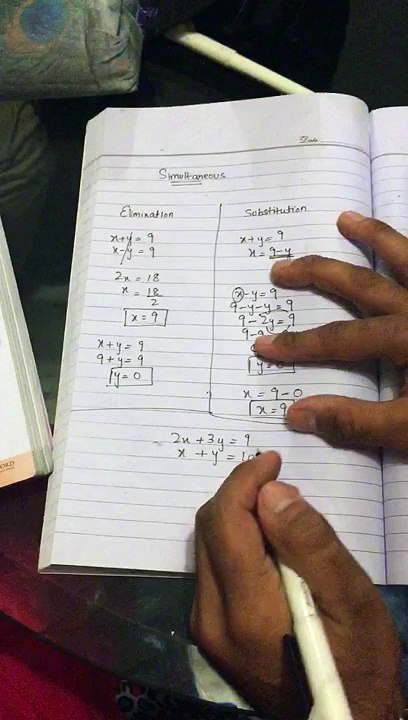 Date
Simultaneous
Elimination
x+y = 9
x-y = 9
2x = 18
x = 18
2
x = 9
x+y = 9
9+y = 9
y = 0
Substitution
x+y = 9
x = 9-y
x-y = 9
9-y-y = 9
9-2y = 9
x = 9-0
x = 9
2x + 3y = 9
x + y = 10
ORD